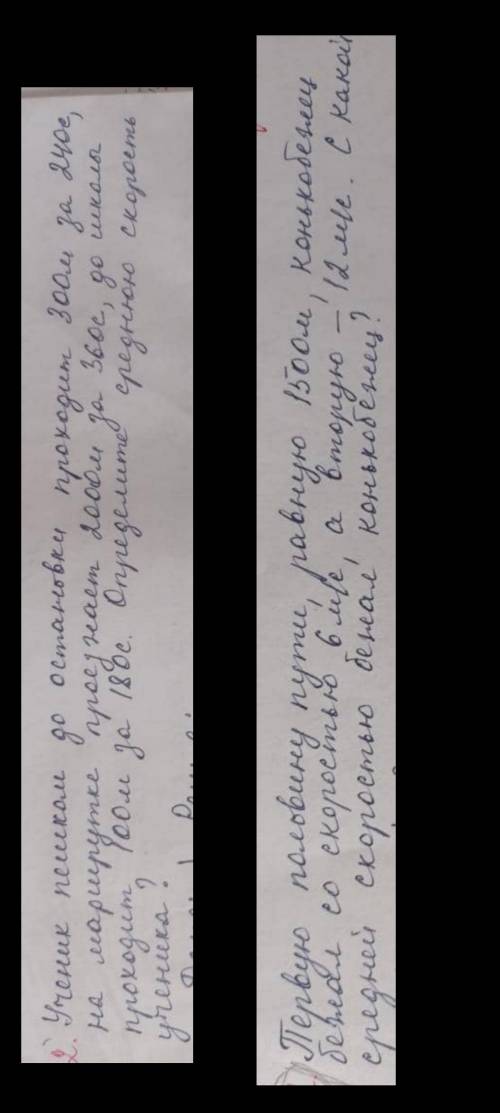 2. Ученик пешком до остановки проходит 300м за 240с,
на маршрутке проезжает 2000м за 360с, до школы
проходит 100м за 180с. Определите среднюю скорость
ученика?
Первую половину пути, равную 1500м, конькобежец
бежал со скоростью 6 м/с, а вторую – 12 м/с. С какой
средней скоростью бежал конькобежец?